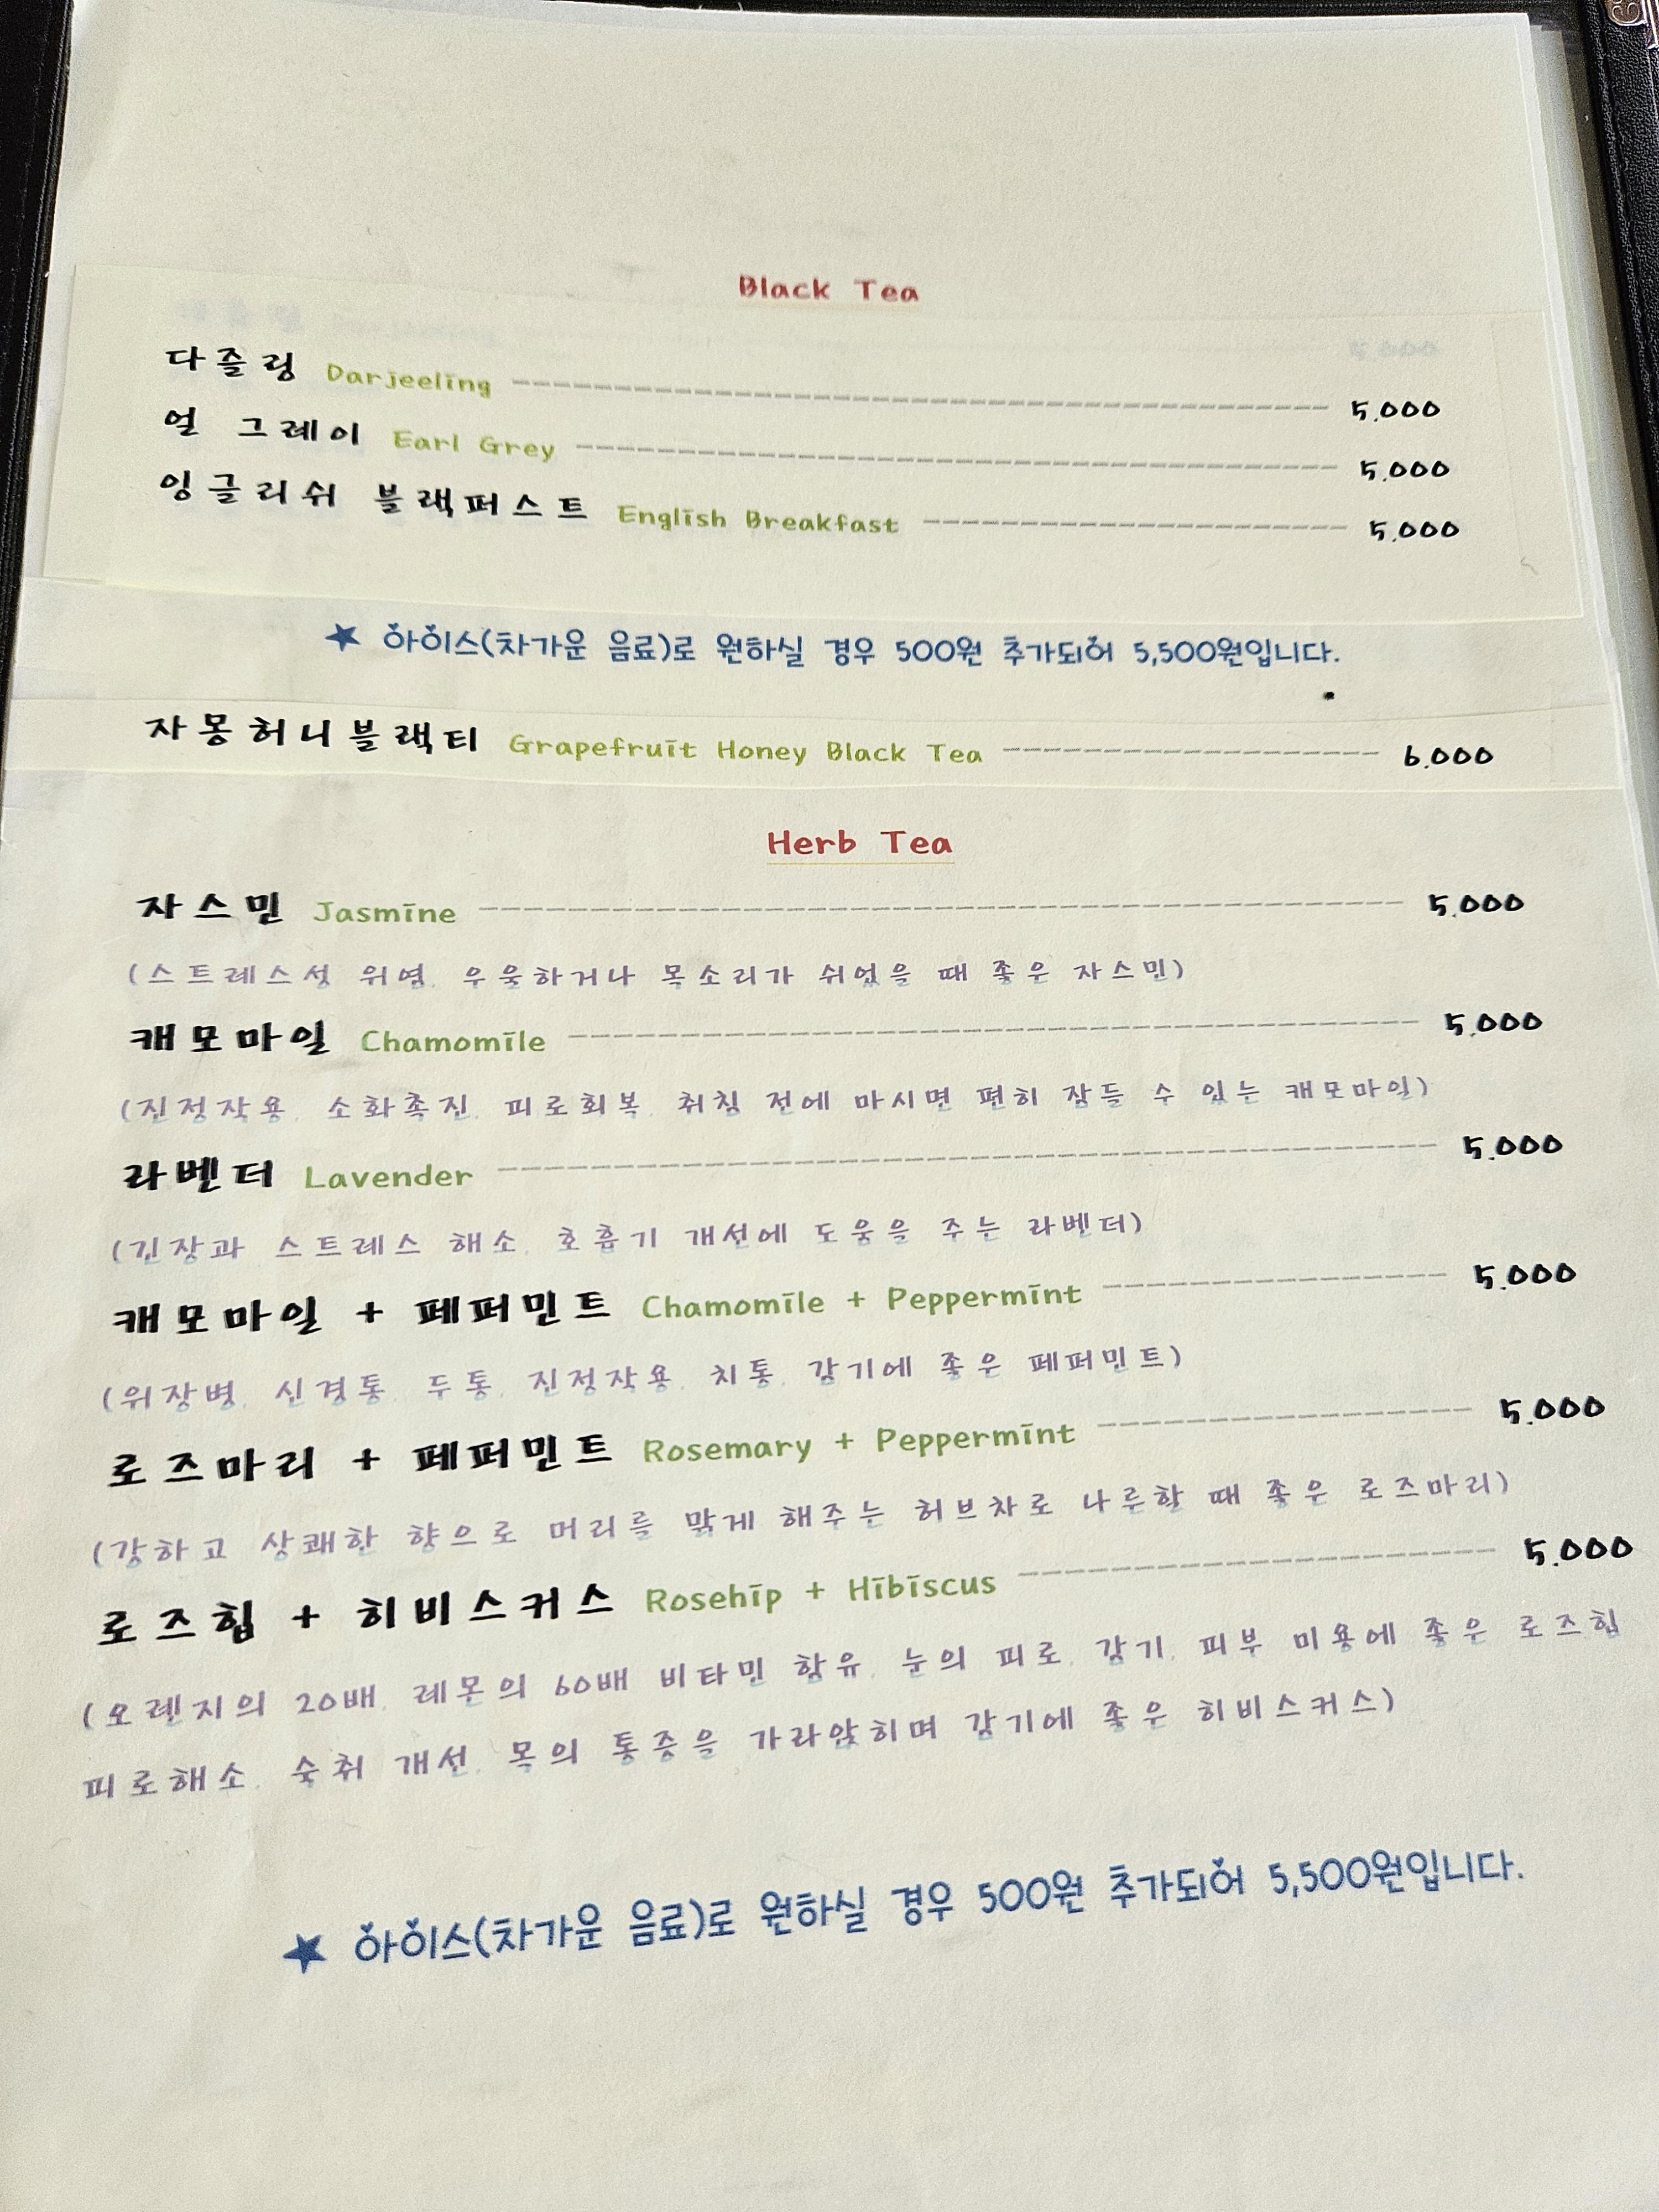 Black Tea
다즐링 Darjeeling 5,000
얼 그레이 Earl Grey 5,000
잉글리쉬 블랙퍼스트 English Breakfast 5,000
★ 아이스(차가운 음료)로 원하실 경우 500원 추가되어 5,500원입니다.
자몽허니블랙티 Grapefruit Honey Black Tea 6,000
Herb Tea
자스민 Jasmine 5,000
(스트레스성 위염, 우울하거나 목소리가 쉬었을 때 좋은 자스민)
캐모마일 Chamomile 5,000
(진정작용, 소화촉진, 피로회복, 취침 전에 마시면 편히 잠들 수 있는 캐모마일)
라벤더 Lavender 5,000
(긴장과 스트레스 해소, 호흡기 개선에 도움을 주는 라벤더)
캐모마일 + 페퍼민트 Chamomile + Peppermint 5,000
(위장병, 신경통, 두통, 진정작용, 치통, 감기에 좋은 페퍼민트)
로즈마리 + 페퍼민트 Rosemary + Peppermint 5,000
(강하고 상쾌한 향으로 머리를 맑게 해주는 허브차로 나른할 때 좋은 로즈마리)
로즈힙 + 히비스커스 Rosehip + Hibiscus 5,000
(오렌지의 20배, 레몬의 60배 비타민 함유, 눈의 피로, 감기, 피부 미용에 좋은 로즈힙
피로해소, 숙취 개선, 목의 통증을 가라앉히며 감기에 좋은 히비스커스)
★ 아이스(차가운 음료)로 원하실 경우 500원 추가되어 5,500원입니다.